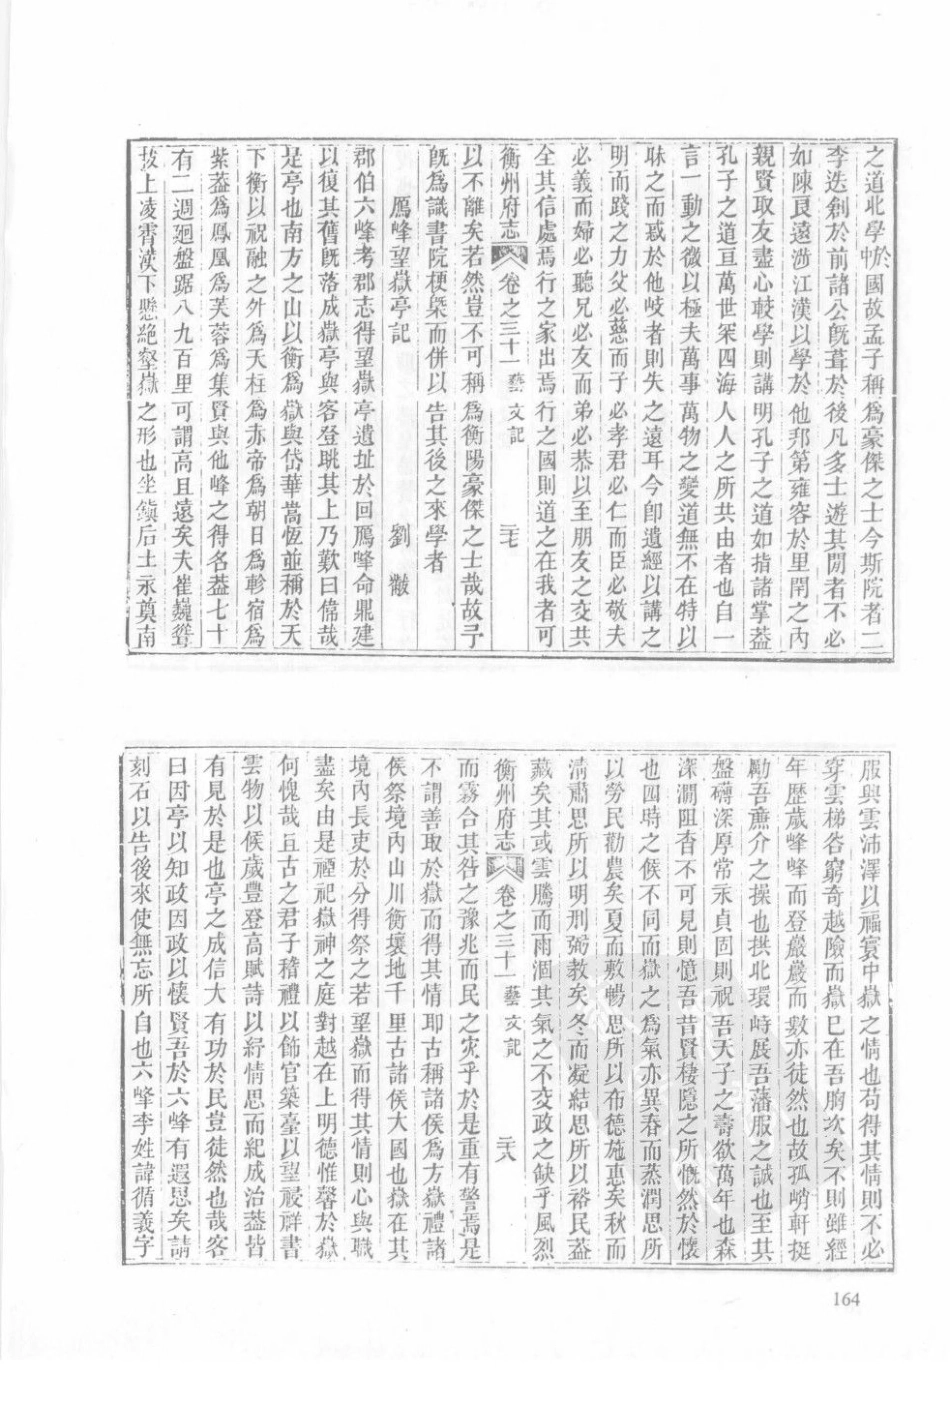 之道北學於中國故孟子稱爲豪傑之士今斯院者二
李迭創於前諸公旣葺於後凡多士遊其閒者不必
如陳良遠涉江漢以學於他邦第雍容於里閈之內
親賢取友盡心敎學則講明孔子之道如指諸掌葢
孔子之道亘萬世罙四海人人之所共由者也自一
言一動之微以極夫萬事萬物之變道無不在特以
昧之而惑於他岐者則失之遠耳今卽遺經以講之
明而踐之力父必慈而子必孝君必仁而臣必敬夫
必義而婦必聽兄必友而弟必恭以至朋友之交共
全其信處焉行之家出焉行之國則道之在我者可
衡州府志 卷之三十一 藝文記 三七
以不離矣若然豈不可稱爲衡陽豪傑之士哉故予
旣爲識書院梗槩而併以告其後之來學者
鴈峰望嶽亭記 劉黻
郡伯六峰考郡志得望嶽亭遺址於回鴈峰命鼎建
以復其舊旣落成嶽亭與客登眺其上乃歎曰偉哉
是亭也南方之山以衡爲嶽與岱華嵩恆並稱於天
下衡以祝融之外爲天柱爲赤帝爲朝日爲軫宿爲
紫葢爲鳳凰爲芙蓉爲集賢與他峰之得名葢七十
有二週廻盤踞八九百里可謂高且遠矣夫崔巍聳
拔上凌霄漢下懸絶壑嶽之形也坐鎭后土永奠南
服興雲沛澤以福寰中嶽之情也苟得其情則不必
穿雲梯谷窮奇越險而嶽已在吾胸次矣不則雖經
年歷歲峰峰而登巖巖而數亦徒然也故孤峭軒挺
勵吾廉介之操也拱北環峙展吾藩服之誠也至其
盤礴深厚常永貞固則祝吾天子之壽欲萬年也森
深澗阻杳不可見則憶吾昔賢棲隱之所慨然於懷
也四時之候不同而嶽之爲氣亦異春而蒸潤思所
以勞民勸農矣夏而敷暢思所以布德施惠矣秋而
淸肅思所以明刑弼敎矣冬而凝結思所以裕民葢
藏矣其或雲騰而雨涸其氣之不交政之缺乎風烈
衡州府志 卷之三十一 藝文記 三八
而霧合其咎之豫兆而民之災乎於是重有警焉是
不謂善取於嶽而得其情耶古稱諸侯爲方嶽禮諸
侯祭境內山川衡壤地千里古諸侯大國也嶽在其
境內長吏於分得祭之若望嶽而得其情則心與職
盡矣由是禋祀嶽神之庭對越在上明德惟馨於嶽
何愧哉且古之君子稽禮以飾官築臺以望祲祥書
雲物以候歲豐登高賦詩以紓情思而紀成治葢皆
有見於是也亭之成信大有功於民豈徒然也哉客
曰因亭以知政因政以懷賢吾於六峰有遐思矣請
刻石以告後來使無忘所自也六峰李姓諱循義字
164